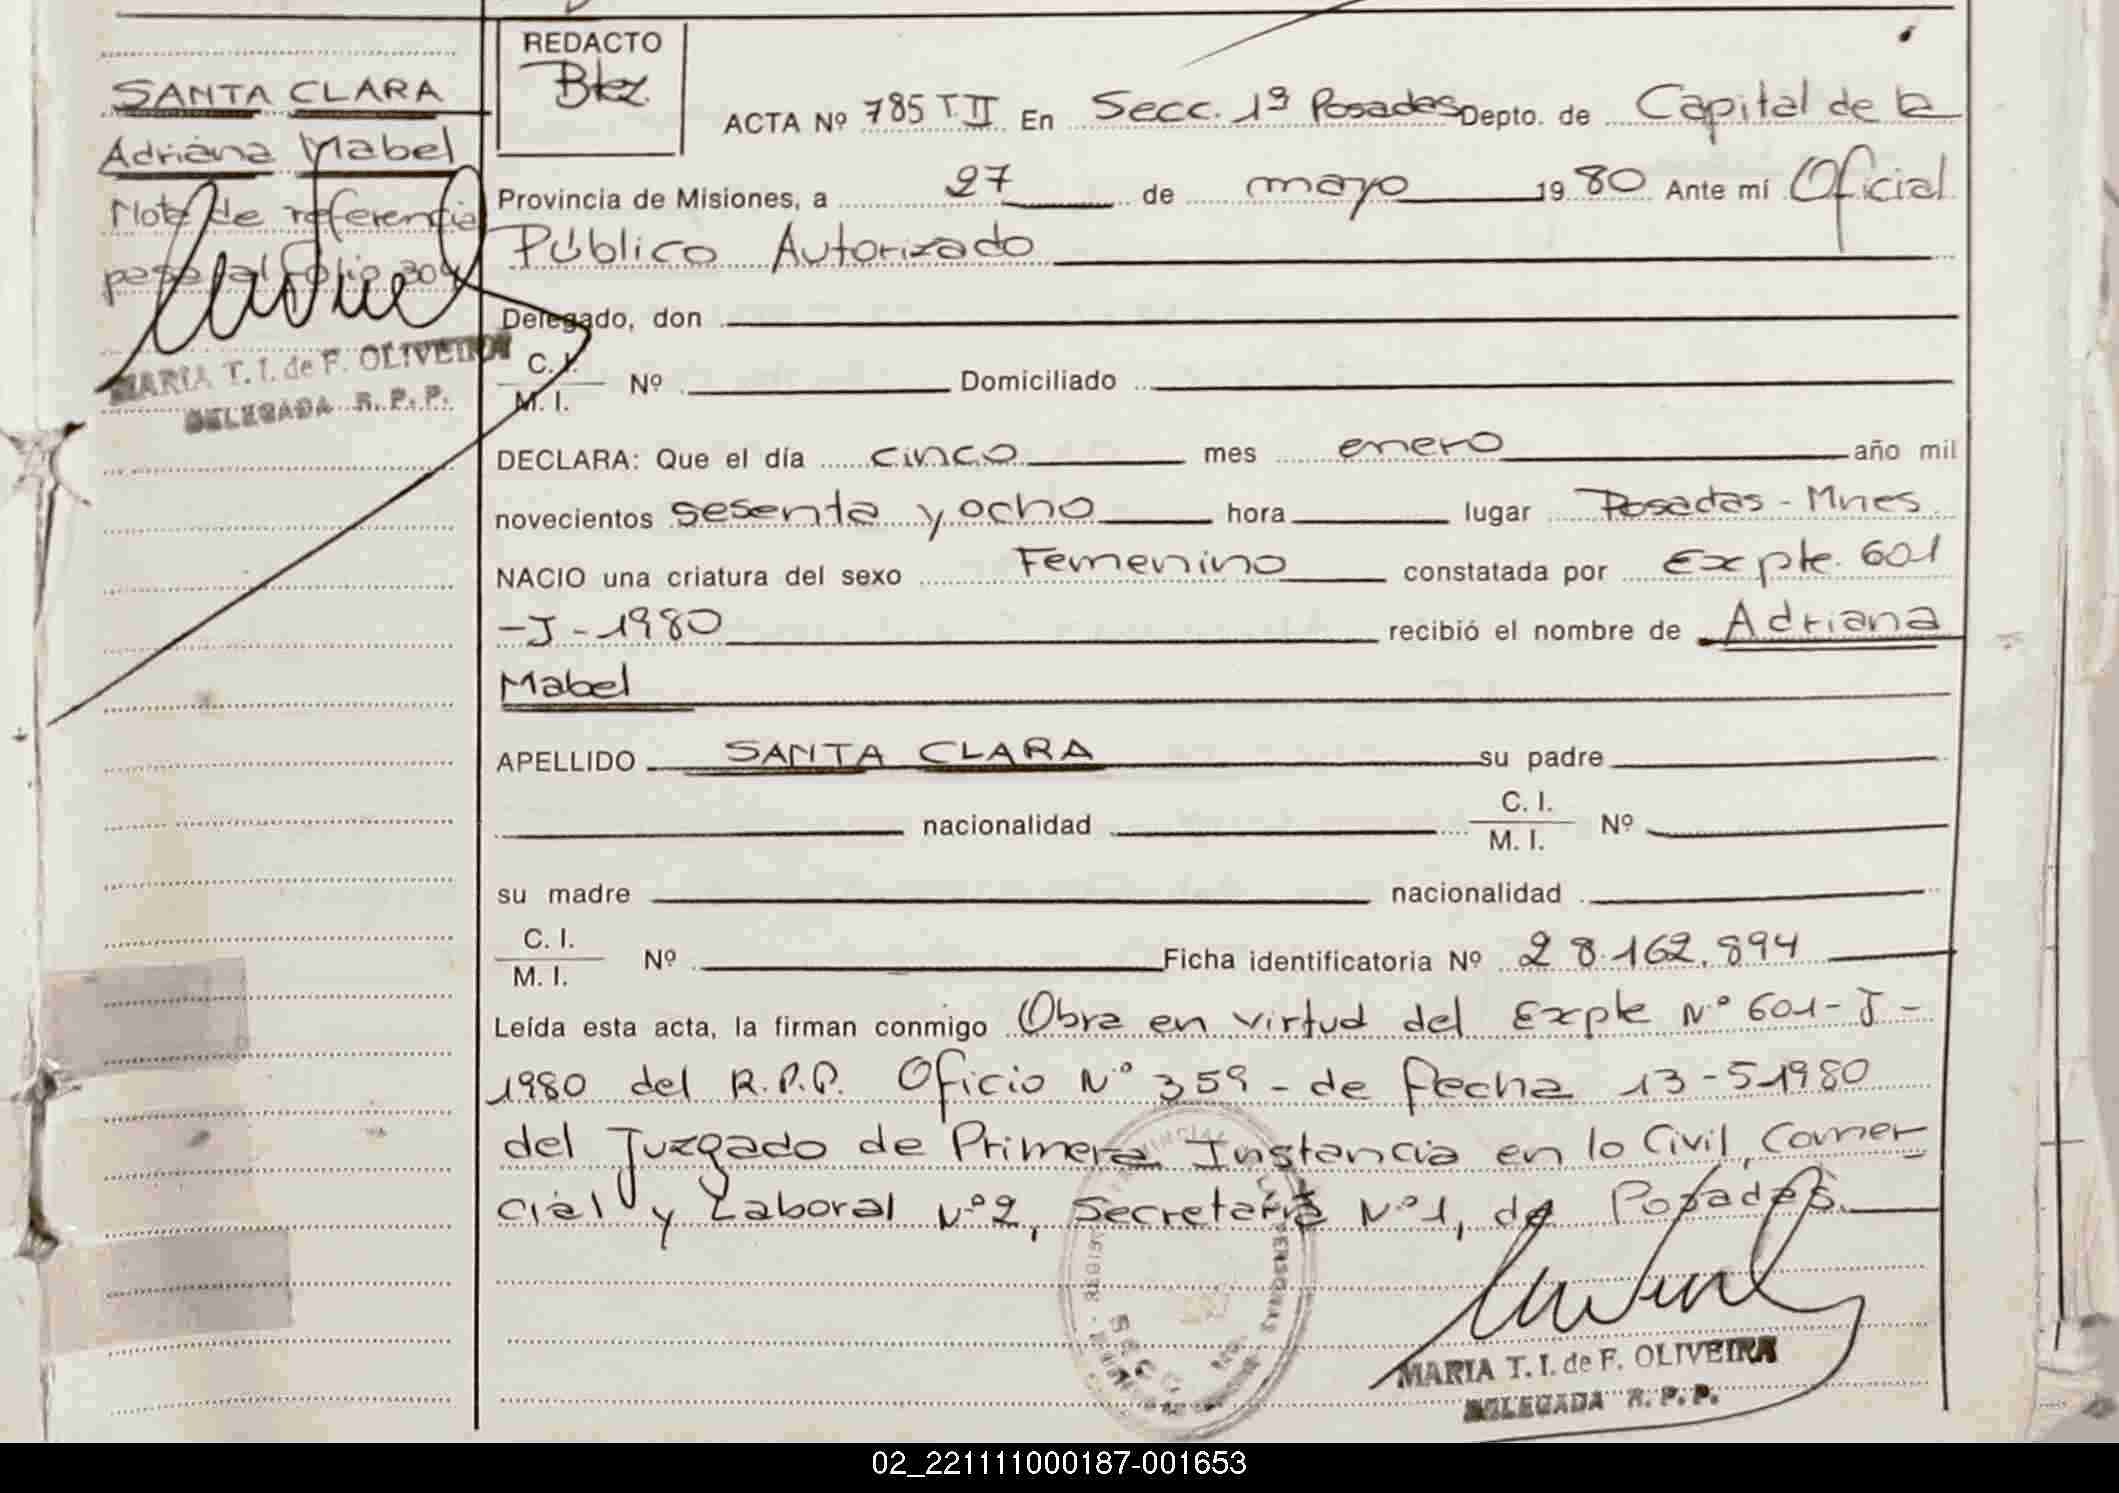 SANTA CLARA
Adriana Mabel
Nota de referencia
pasa al folio 304
MARIA T. I. de F. OLIVEIRA
DELEGADA R. P. P.
REDACTO
Btez.
ACTA Nº 785 T II En Secc. 1ª Posadas Depto. de Capital de la
Provincia de Misiones, a 27 de mayo 1980 Ante mí Oficial
Público Autorizado
Delegado, don
C. I.
M. I. Nº Domiciliado
DECLARA: Que el día cinco mes enero año mil
novecientos sesenta y ocho hora lugar Posadas - Mnes
NACIO una criatura del sexo Femenino constatada por Expte. 601
-J-1980 recibió el nombre de Adriana
Mabel
APELLIDO SANTA CLARA su padre
nacionalidad C. I.
M. I. Nº
su madre nacionalidad
C. I.
M. I. Nº Ficha identificatoria Nº 28.162.894
Leída esta acta, la firman conmigo Obra en virtud del Expte Nº 601-J-
1980 del R.P.P. Oficio Nº 359 - de fecha 13-5-1980
del Juzgado de Primera Instancia en lo Civil, Comer-
cial y Laboral Nº 2, Secretaria Nº 1, de Posadas.
MARIA T. I. de F. OLIVEIRA
DELEGADA R. P. P.
02_221111000187-001653